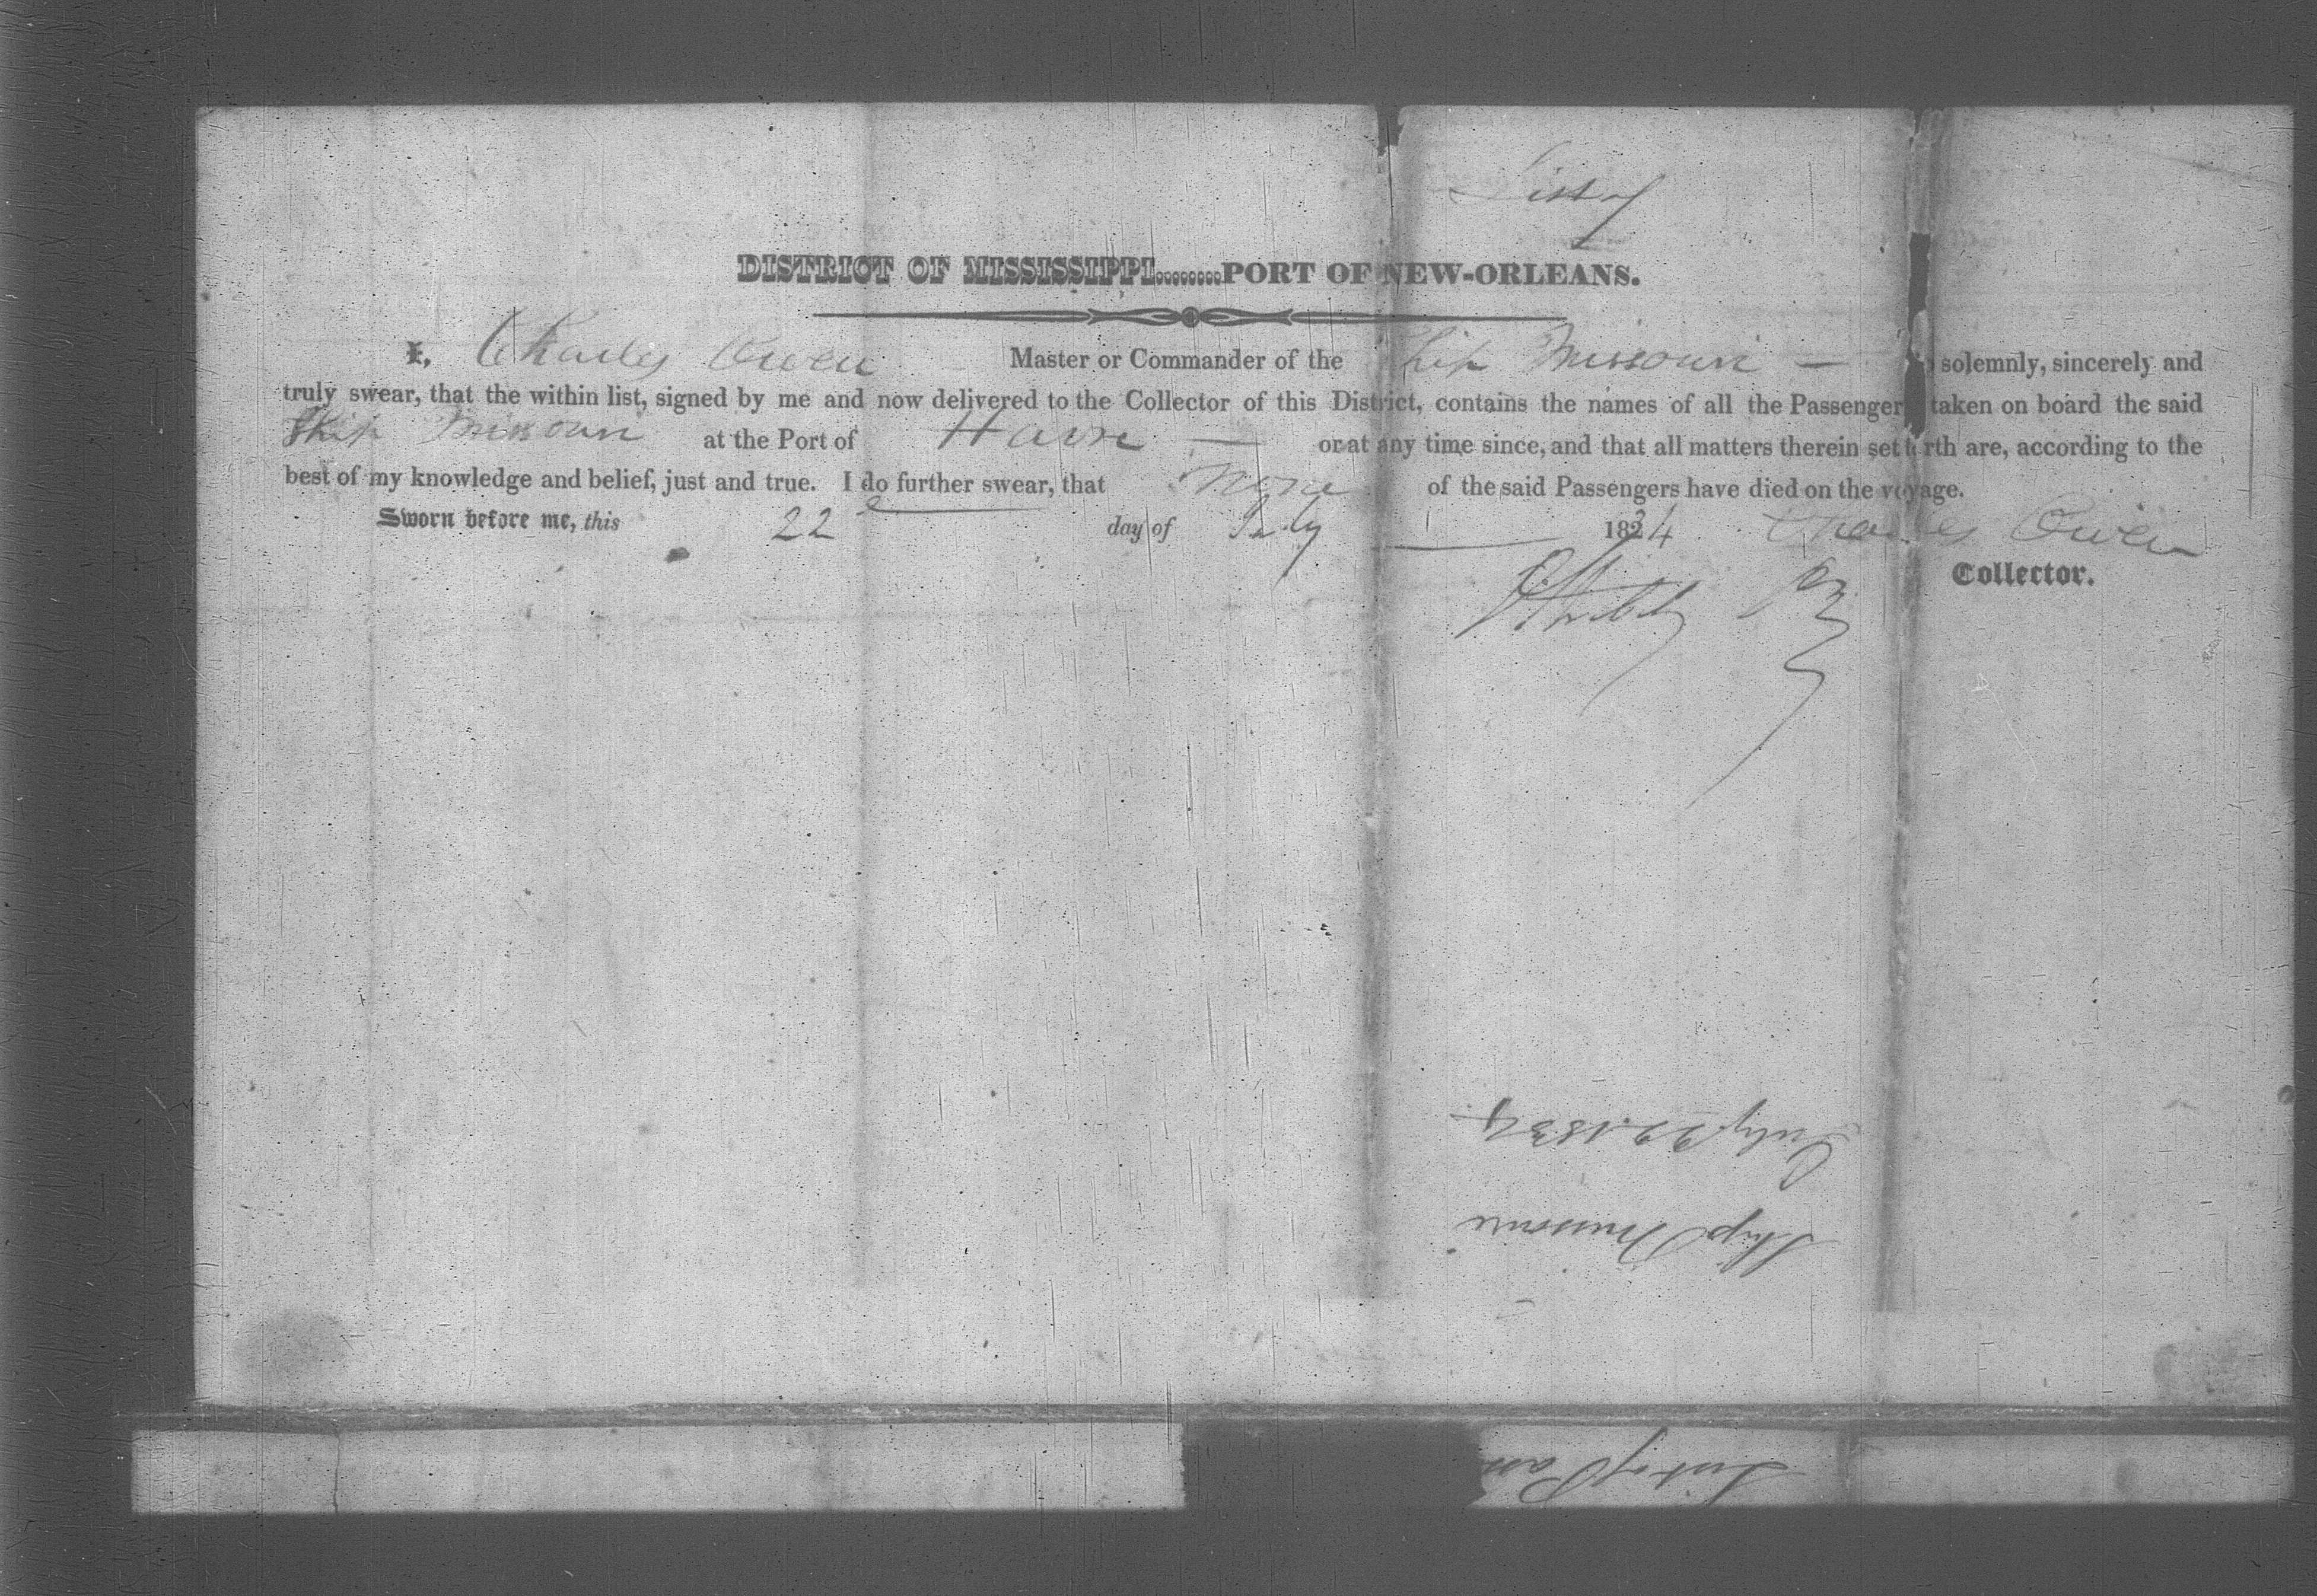 List of
DISTRICT OF MISSISSIPPI.........PORT OF NEW-ORLEANS.
I, Charles Owen Master or Commander of the Ship Missouri — solemnly, sincerely and
truly swear, that the within list, signed by me and now delivered to the Collector of this District, contains the names of all the Passenger taken on board the said
Ship Missouri at the Port of Havre — or at any time since, and that all matters therein set forth are, according to the
best of my knowledge and belief, just and true. I do further swear, that None of the said Passengers have died on the voyage.
Sworn before me, this 22 day of July 1834 Charles Owen
Collector.
July 22. 1834
Ship Missouri
List of Pass